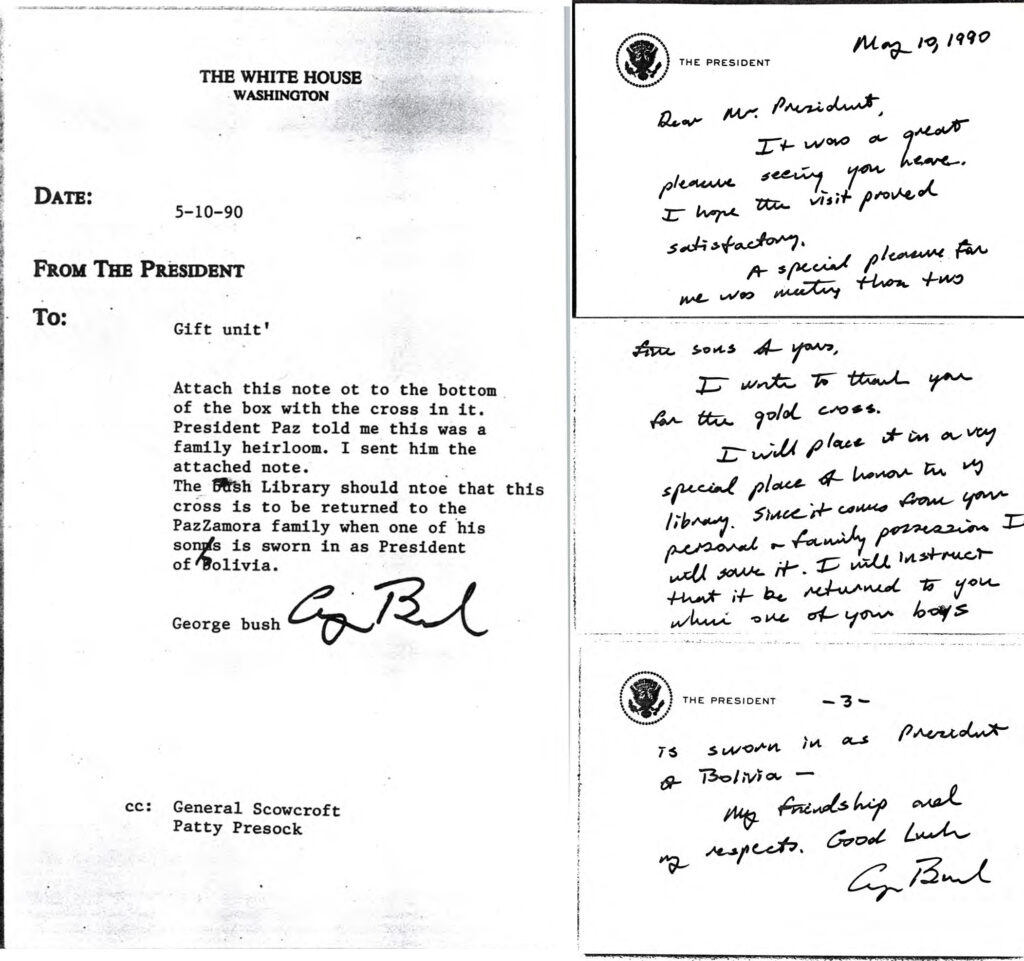 THE WHITE HOUSE
WASHINGTON
DATE:
5-10-90
FROM THE PRESIDENT
TO:
Gift unit'
Attach this note ot to the bottom
of the box with the cross in it.
President Paz told me this was a
family heirloom. I sent him the
attached note.
The Bush Library should ntoe that this
cross is to be returned to the
PazZamora family when one of his
sons is sworn in as President
of Bolivia.
George bush
George Bush
cc: General Scowcroft
Patty Presock
THE PRESIDENT
May 10, 1990
Dear Mr. President,
It was a great
pleasure seeing you here.
I hope the visit proved
satisfactory.
A special pleasure for
me was meeting those two
fine sons of yours.
I write to thank you
for the gold cross.
I will place it in a very
special place of honor in my
library. Since it comes from your
personal family possession I
will save it. I will instruct
that it be returned to you
when one of your boys
THE PRESIDENT
-3-
is sworn in as President
of Bolivia —
My friendship and
my respects. Good Luck
George Bush